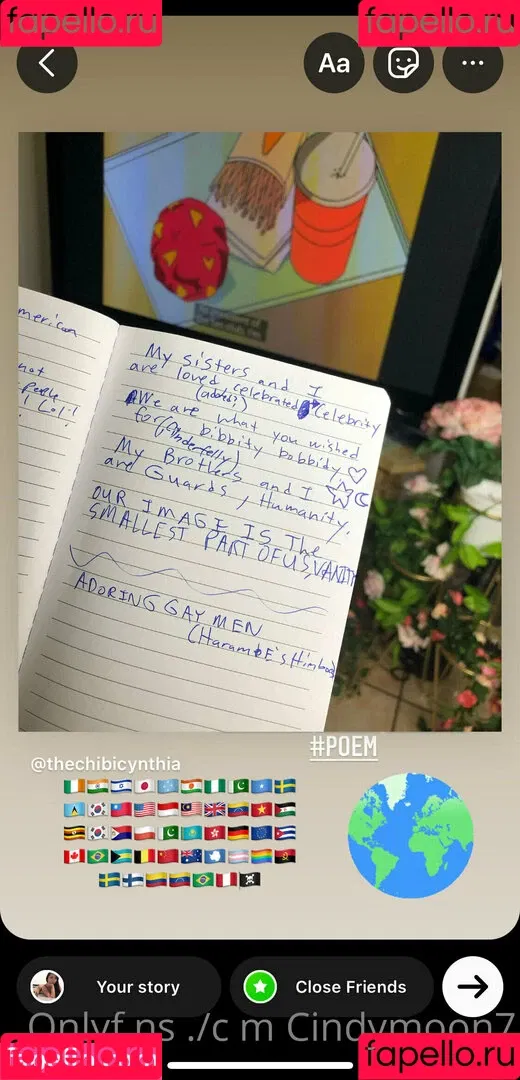 fapello.ru fapello.ru
Aa
merican
not
people
! Lol!
My sisters and I
are loved, celebrated, Celebrity
(added?)
We are what you wished
for, a bibbity bobbidy
My Brothers and I
are Guards, Humanity.
OUR IMAGE IS The
SMALLEST PART OF US, VANITY
ADORING GAY MEN
(HarambE's Himbos)
#POEM
@thechibicynthia
Your story
Close Friends
Onlyf ns ./c m Cindymoon7
fapello.ru fapello.ru